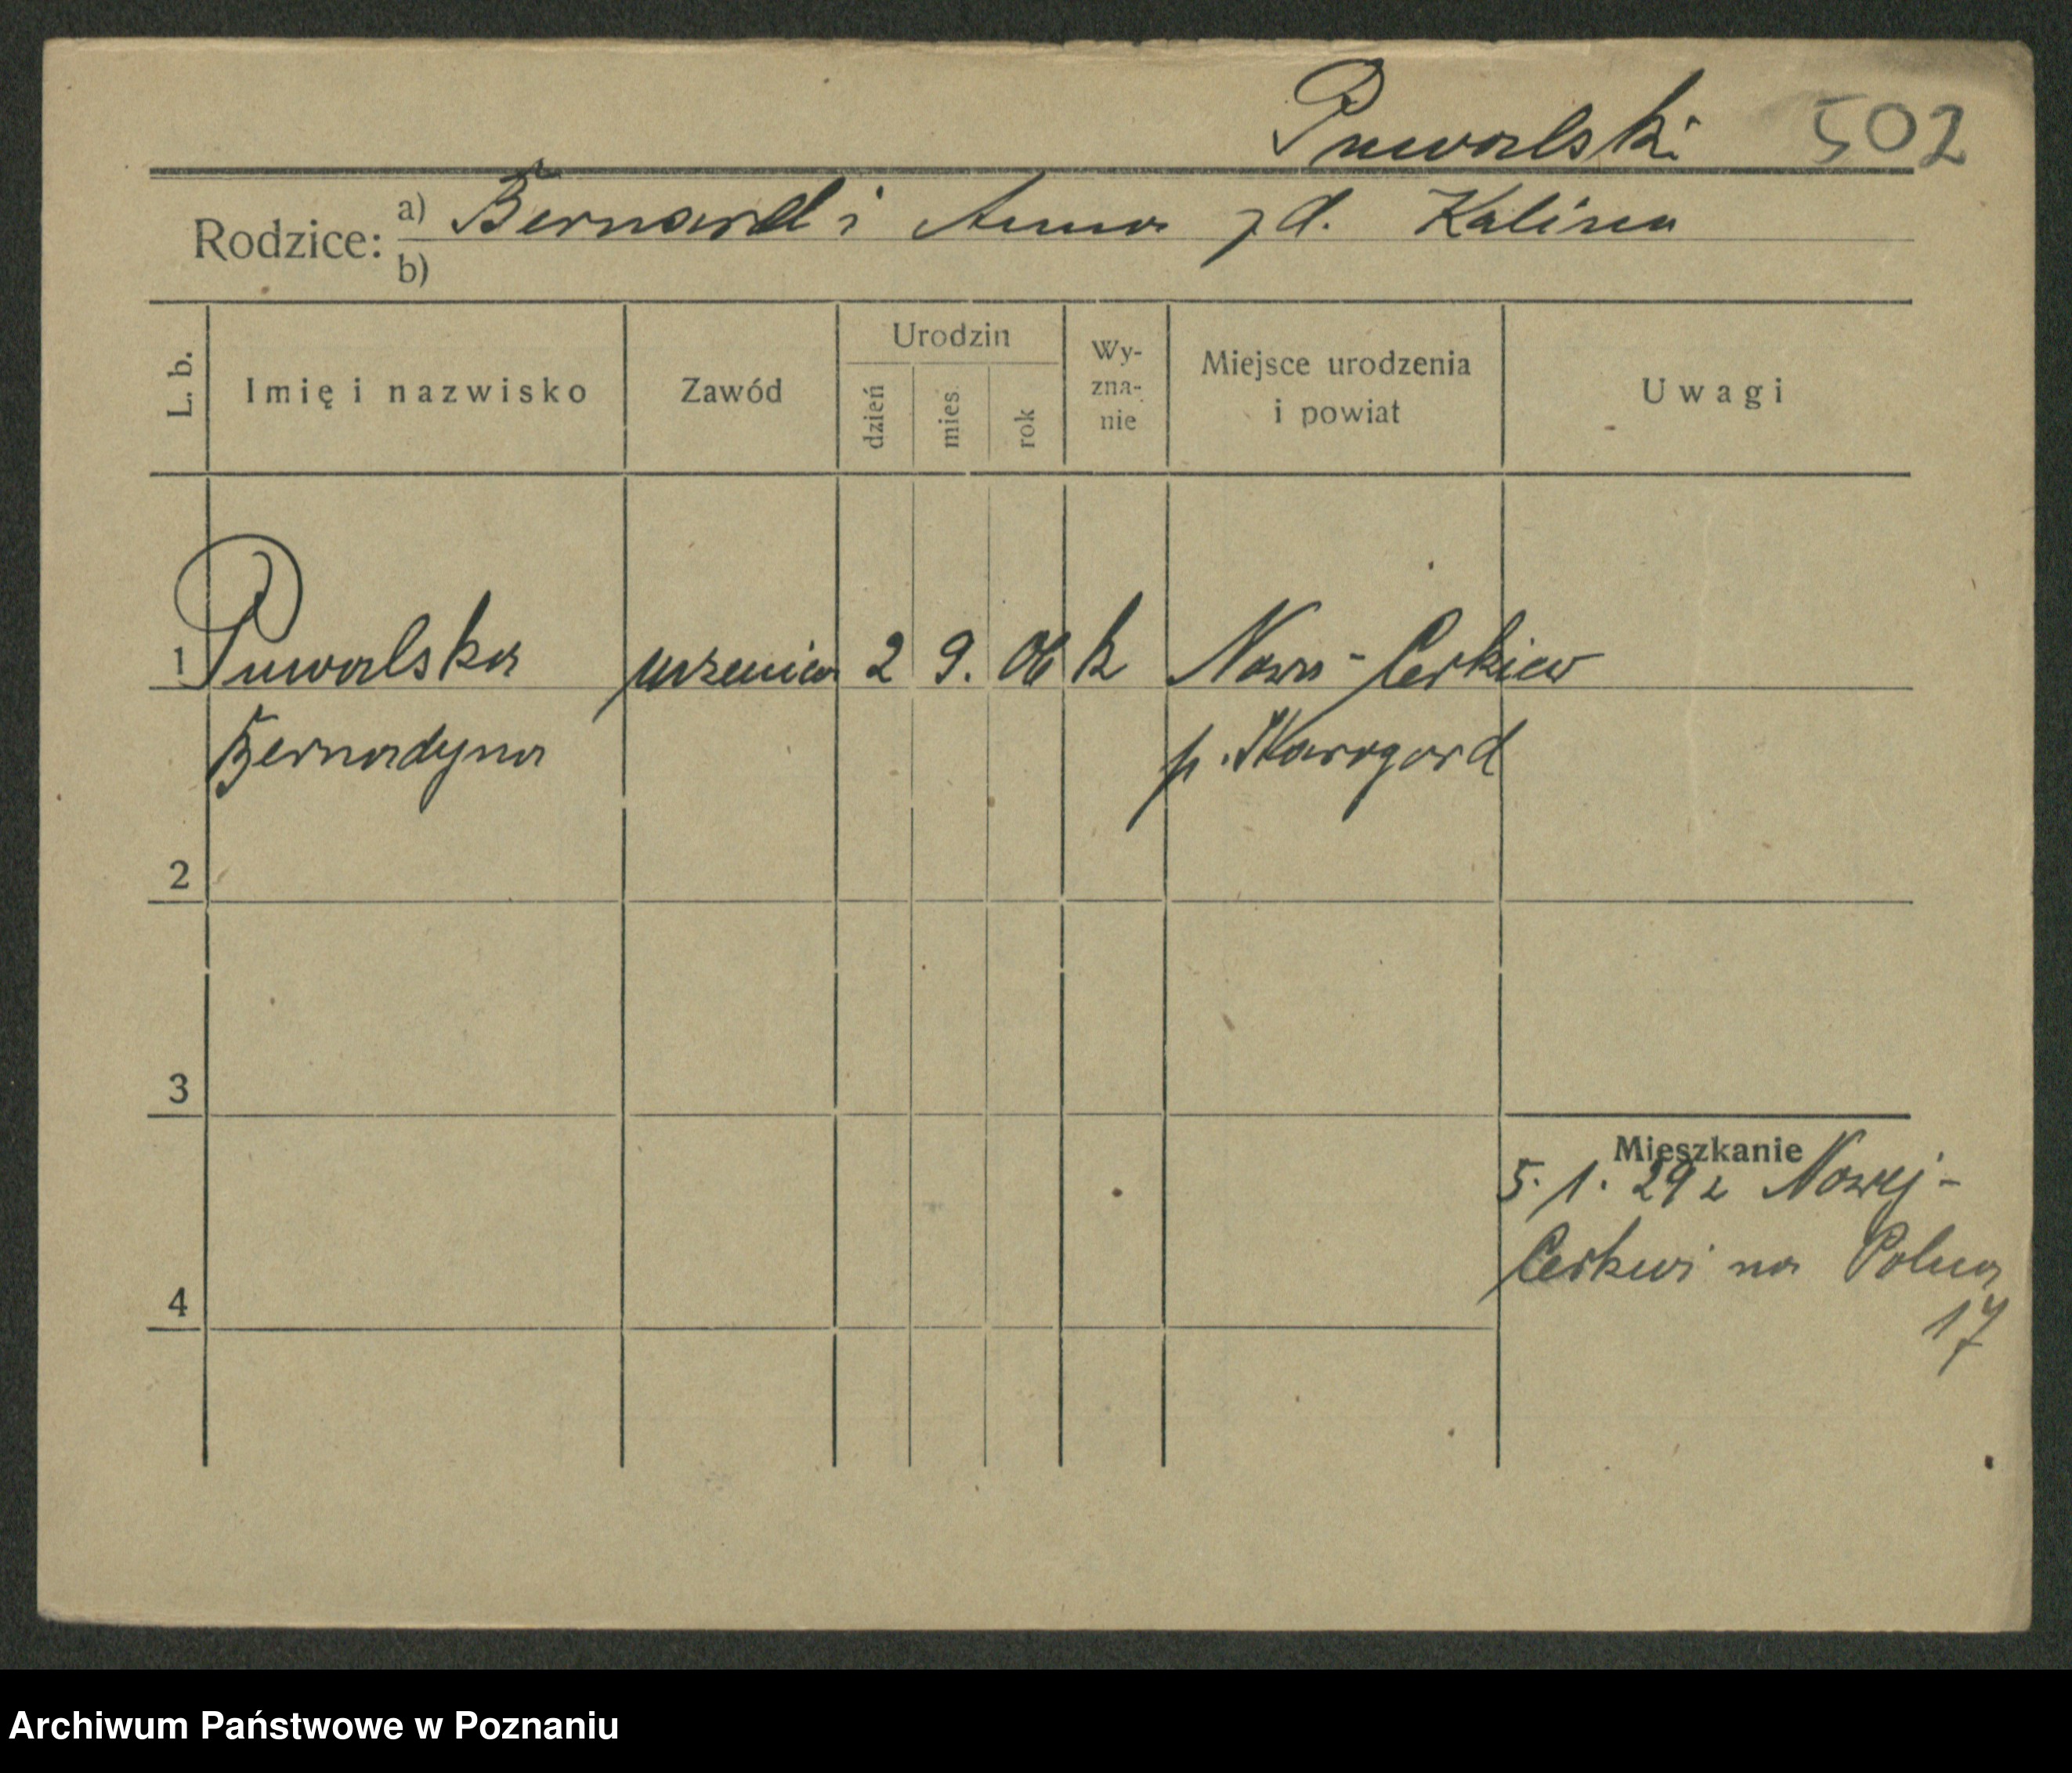 Puwalski 502
Rodzice: a) Bernard i Anna z d. Kalina
b)
L. b. Imię i nazwisko Zawód Urodzin dzień mies. rok Wy-zna-nie Miejsce urodzenia i powiat Uwagi
1 Puwalska uczenica 2 9. 06 k Nowa-Cerkiew
Bernardyna p. Starogard
2
3
Mieszkanie
5. 1. 29 z Nowej-
Cerkwi na Polna
17
4
Archiwum Państwowe w Poznaniu